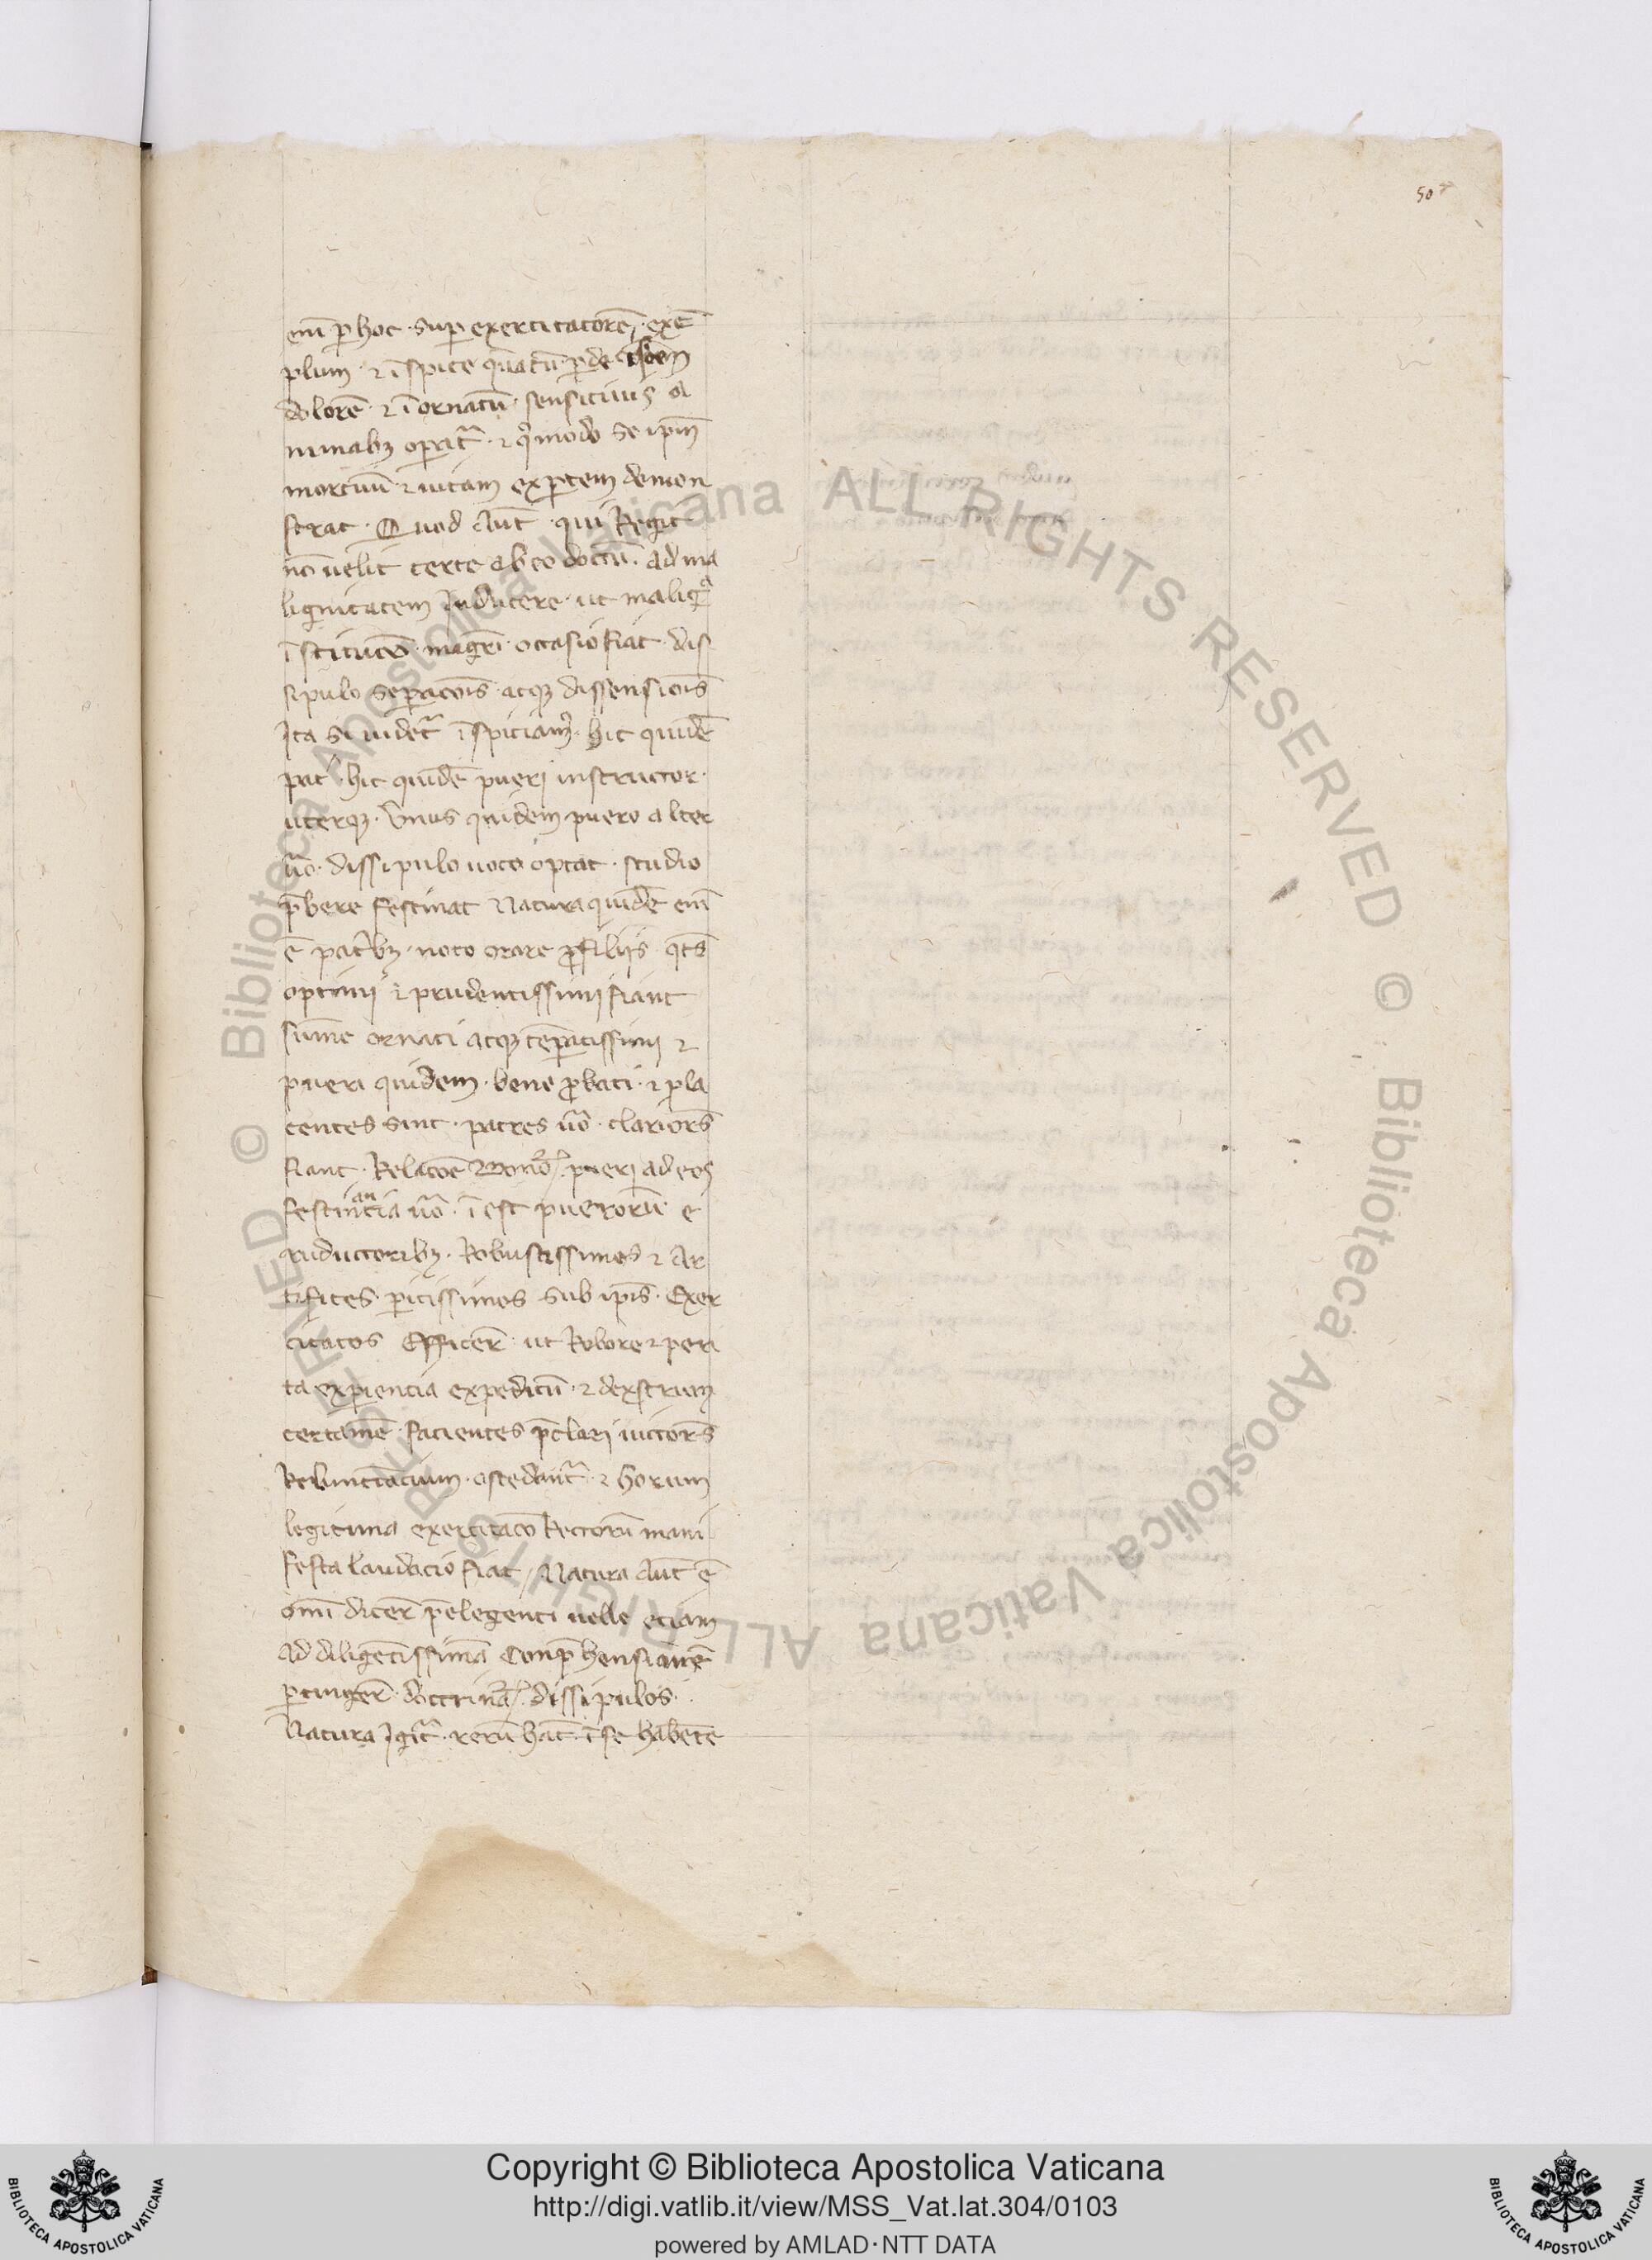 50
enī p hoc · sup exercitatorē, exē
plum · ⁊ īspice quātū pͥde
dolorē · ⁊ īornatū · sensitiuis a
nimabꝫ opat᷑ · ⁊ qͦmodo se ipm̄
mortuū ⁊ uitam exptem demon
strat · Quod aut̄ · qui Regit
nō uelit certe ab eo doctū · ad ma
lignitatem inducere · ut malig
īstitucō · magr̄i · occasio fiat · dis
sipulo sepacōis · atqꝫ dissensiōis
Ita si uidet᷑ īspiciamꝰ · hic quidē
pat̄ · hic quidē pueri instructor ·
uterqꝫ · Vnus quidem puero alter
uō · dissipulo uoto optat · studio
p̄bere festinat Natura quidē enī
ē patribꝫ · uoto orare ꝓ filijs
optimi ⁊ prudentissimi fiant
sūme ornati atqꝫ tēpatissimi ⁊
pueri quidem · bene ꝓbati · ⁊ pla
centes sint · patres uō · clariorēs
fiant · Relacōe bonoꝝ pueri ad eos
festinantia uō · ī est puerorū · e
ruductoribꝫ · Robustissimos ⁊ Ar
tifices · pitissimos sub ip̄is · Exer
citatos Efficer̄ · ut Robore ⁊ peri
ta expiencia expeditū · ⁊ dextrum
certamē · facientes p̄clari uictorēs
ostēdant᷑ · ⁊ horum
legitima exercitacō Rectorū mani
festa laudacio fiat / Natura aut̄ ē
om̄i dicer̄ p̄elegenti uelle etiam
ad diligētissimā Comp̄hensionē
ptinger̄ · doctrinaꝝ · dissipulos ·
Natura Igit᷑ · rerū hāc · ī se habētē
Copyright © Biblioteca Apostolica Vaticana
http://digi.vatlib.it/view/MSS_Vat.lat.304/0103
powered by AMLAD·NTT DATA
BIBLIOTECA APOSTOLICA VATICANA
BIBLIOTECA APOSTOLICA VATICANA
© Biblioteca Apostolica Vaticana ALL RIGHTS RESERVED © Biblioteca Apostolica Vaticana ALL RIGHTS RESERVED